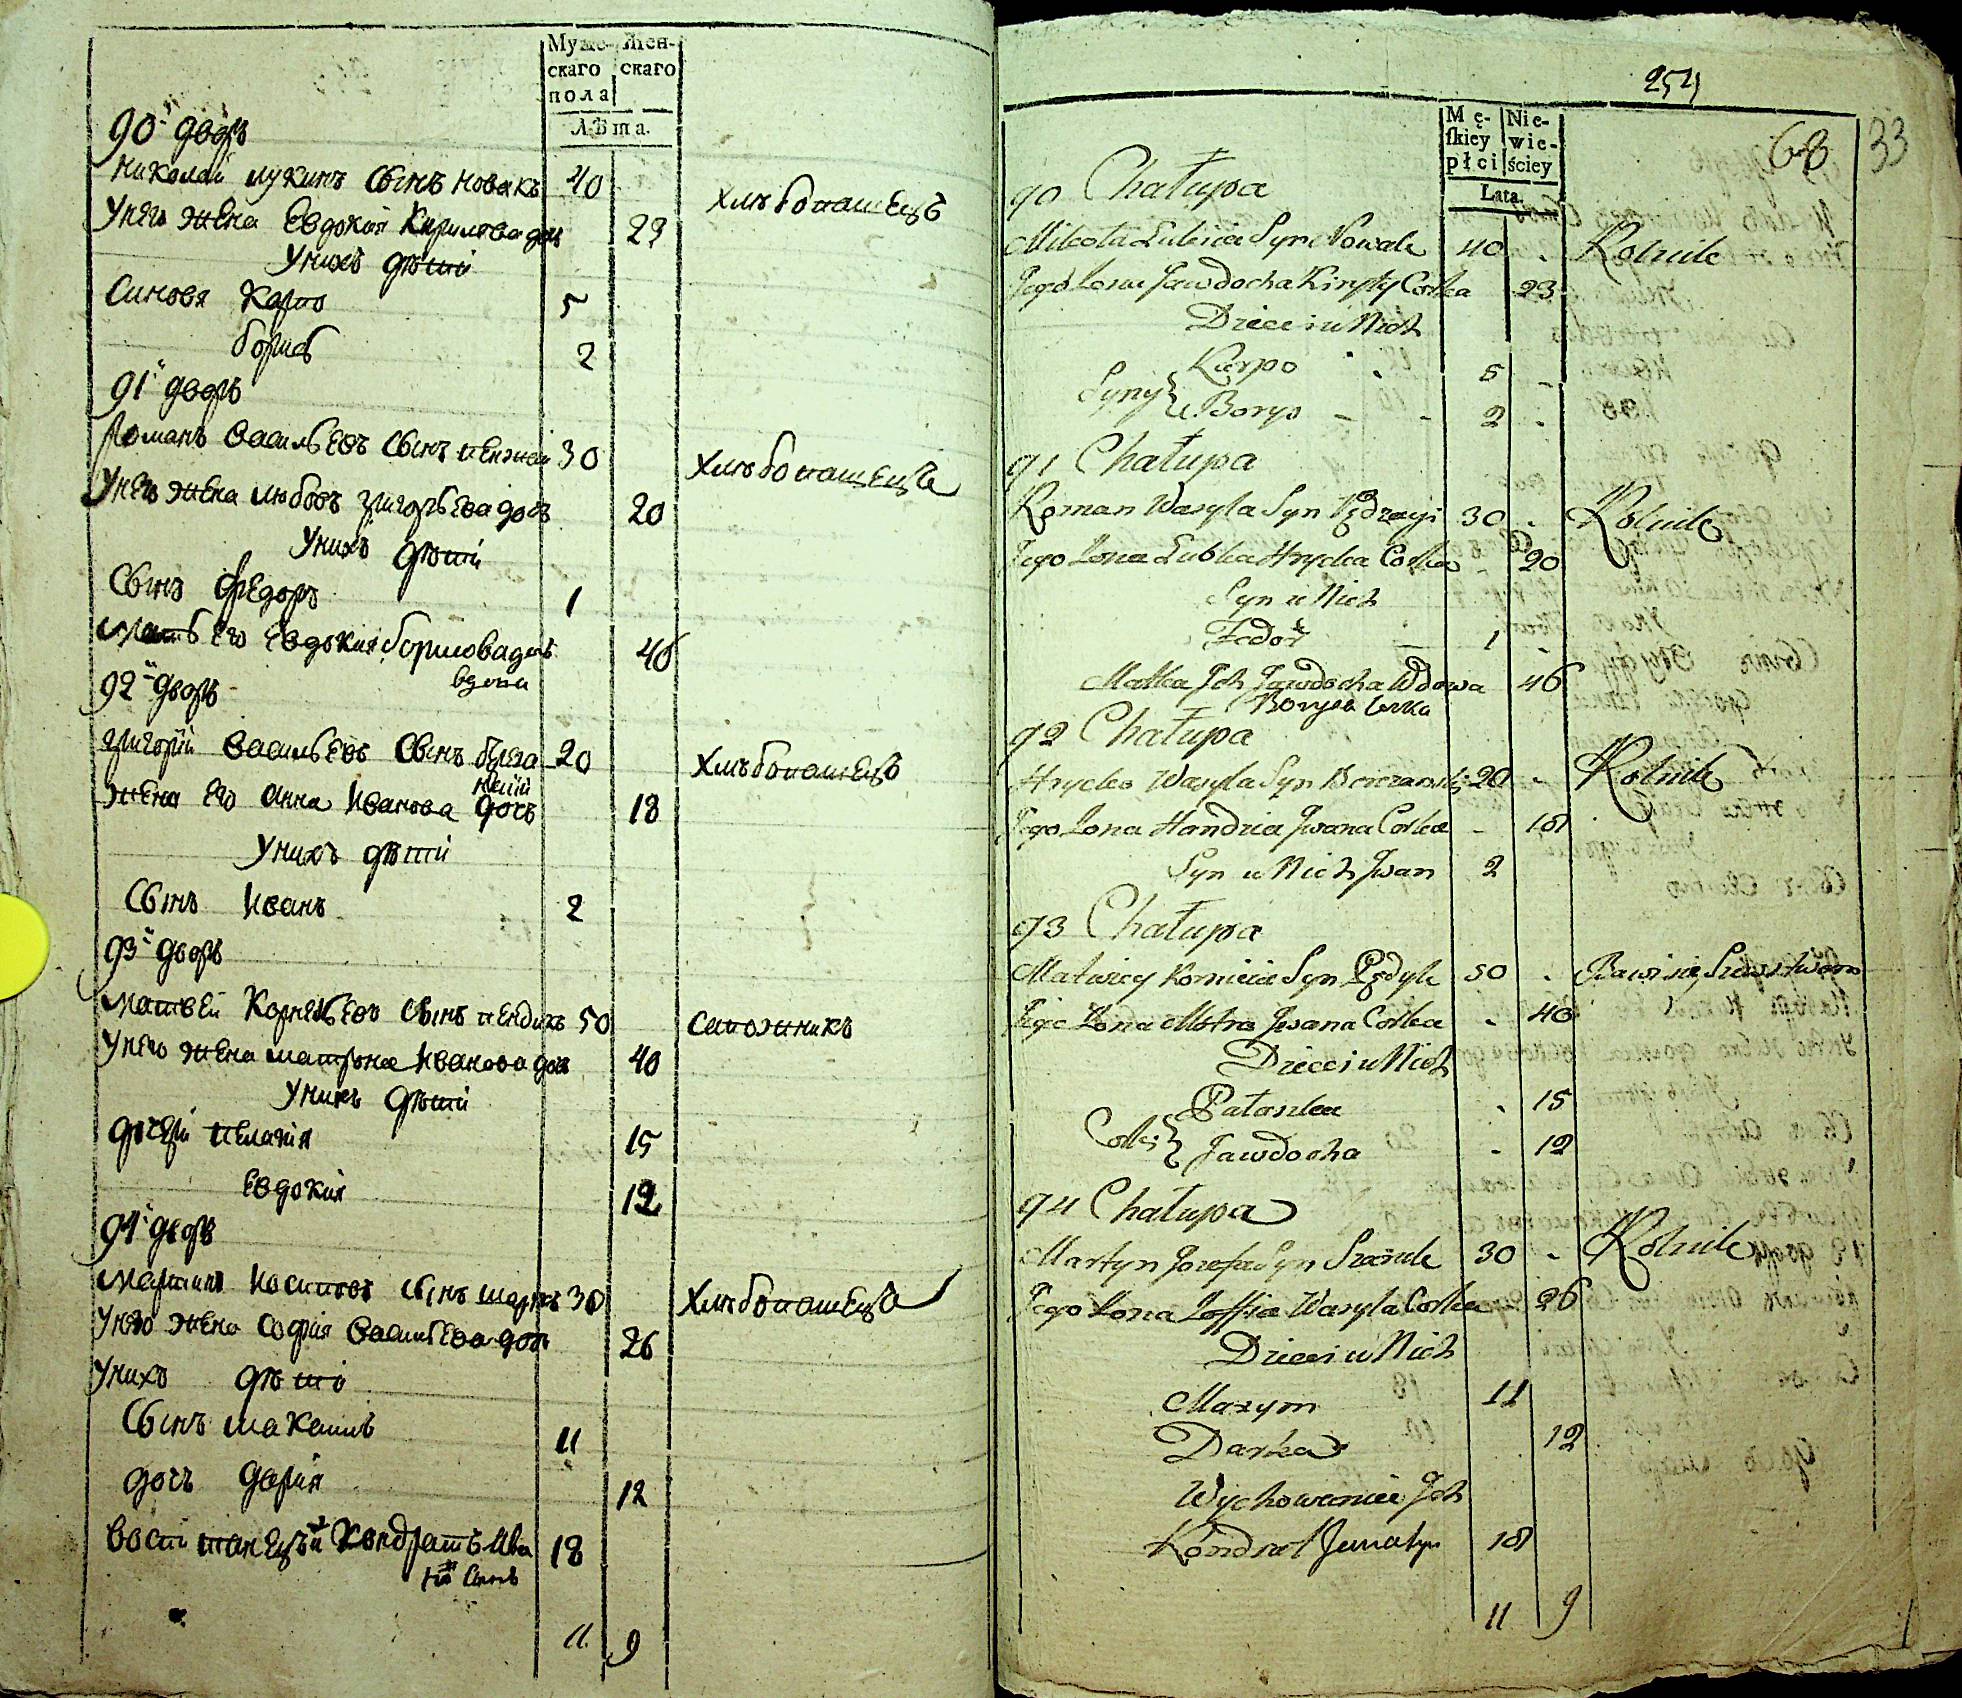 Муже- Жен-
скаго скаго
пола
Лѣта.
90й дворъ
Николай Лукинъ сынъ Новакъ 40 хлѣбопашецъ
У него жена Евдокия Кирилова дочь 23
У нихъ дѣти
Синовя Карпо 5
Борисъ 2
91й дворъ
Романъ Васильевъ сынъ 30 хлѣбопашецъ
У него жена Любовъ Григорьева дочь 20
У нихъ дѣти
Сынъ Федоръ 1
Мать его Евдокия Борисова дочь 46
вдова
92й дворъ
Григорий Васильевъ сынъ 20 хлѣбопашецъ
Жена его Анна Иванова дочь 18
У нихъ дѣти
Сынъ Иванъ 2
93й дворъ
Матвей Корнеевъ сынъ Пендикъ 50 сапожникъ
У него жена Матрона Иванова дочь 40
У нихъ дѣти
дочери Пелагия 15
Евдокия 12
94й дворъ
Мартинъ Иосиповъ сынъ 30 хлѣбопашецъ
У него жена София Васильева дочь 26
У нихъ дѣти
Сынъ Максимъ 11
дочь Дария 12
Воспитанецъ их Кондратъ Ива
нъ сынъ 18
11 9
254
68 33
Mę- Nie-
skiey wie-
płci ściey
Lata.
90 Chałupa
Mikoła Łukia Syn Nowak 40 Rolnik
Jego Żona Jawdocha Kiryły Corka 23
Dzieci u Nich
Karpo 5
Syny Borys 2
91 Chałupa
Roman Wasyla Syn 30 Rolnik
Jego Żona Lubka Hryćka Corka 20
Syn u Nich
Fedor 1
Matka Jch Jawdocha Wdowa 46
Borysa Corka
92 Chałupa
Hryćko Wasyla Syn 20 Rolnik
Jego Żona Handzia Jwana Corka 18
Syn u Nich Jwan 2
93 Chałupa
Matwiey Korniia Syn Pędyk 50 Bawi się Szewstwem
Jego Żona Motra Jwana Corka 40
Dzieci u Nich
Pałaszka 15
Corki Jawdocha 12
94 Chałupa
Martyn Jozefa Syn 30 Rolnik
Jego Żona Zoffia Wasyla Corka 26
Dzieci u Nich
Maxym 11
Darka 12
Wychowaniec Jch
Kondrat 18
11 9